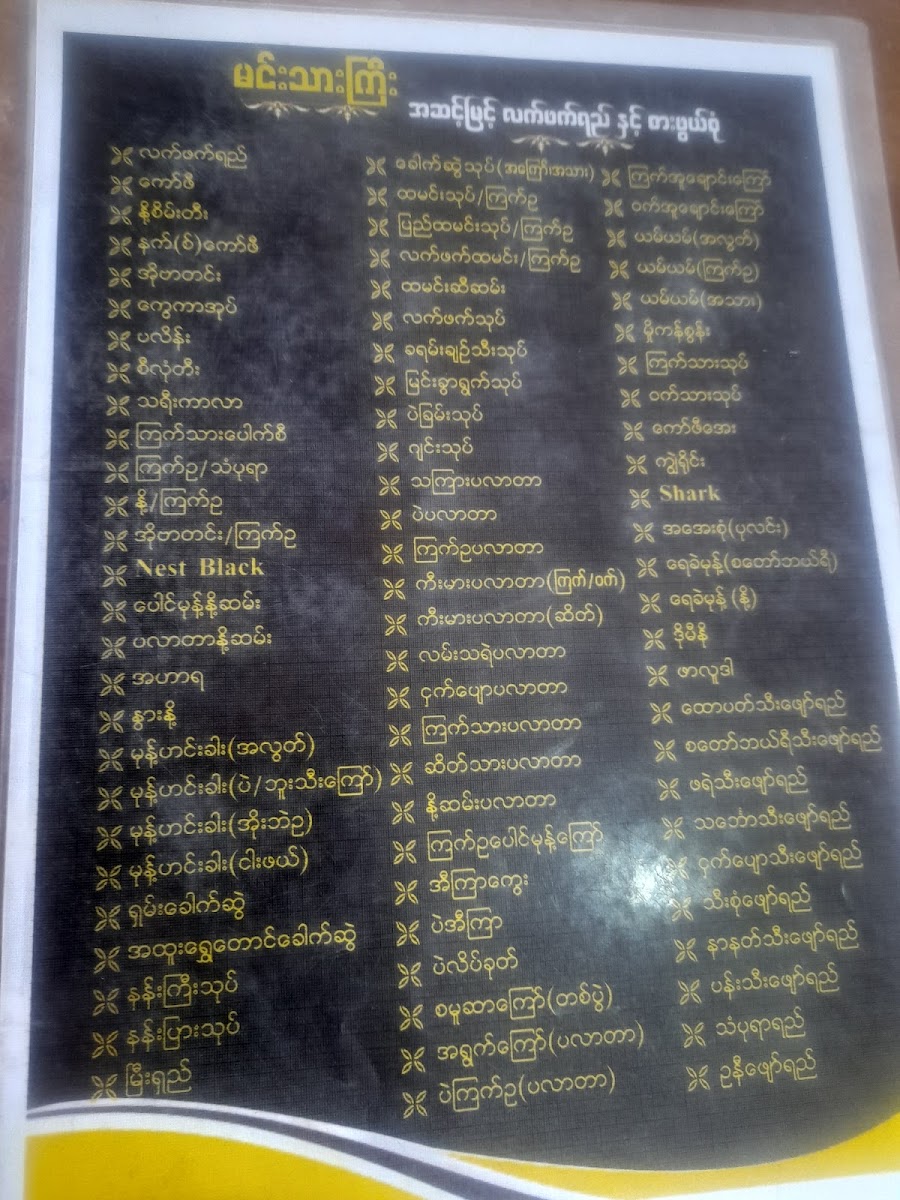 မင်းသားကြီး
အဆင့်မြင့် လက်ဖက်ရည် နှင့် စားဖွယ်စုံ
လက်ဖက်ရည်
ကော်ဖီ
နို့စိမ်းတီး
နက်(စ်)ကော်ဖီ
အိုဗာတင်း
ကွေကာအုပ်
ပလိန်း
စီလုံတီး
သရီးကာလာ
ကြက်သားပေါက်စီ
ကြက်ဥ/သံပုရာ
နို့/ကြက်ဥ
အိုဗာတင်း/ကြက်ဥ
Nest Black
ပေါင်မုန့်နို့ဆမ်း
ပလာတာနို့ဆမ်း
အဟာရ
နွားနို့
မုန့်ဟင်းခါး(အလွတ်)
မုန့်ဟင်းခါး(ပဲ/ဘူးသီးကြော်)
မုန့်ဟင်းခါး(အိုးဘဲဥ)
မုန့်ဟင်းခါး(ငါးဖယ်)
ရှမ်းခေါက်ဆွဲ
အထူးရွှေတောင်ခေါက်ဆွဲ
နန်းကြီးသုပ်
နန်းပြားသုပ်
မြီးရှည်
ခေါက်ဆွဲသုပ်(အကြော်အသား)
ထမင်းသုပ်/ကြက်ဥ
ပြည်ထမင်းသုပ်/ကြက်ဥ
လက်ဖက်ထမင်း/ကြက်ဥ
ထမင်းဆီဆမ်း
လက်ဖက်သုပ်
ခရမ်းချဉ်သီးသုပ်
မြင်းခွာရွက်သုပ်
ပဲခြမ်းသုပ်
ဂျင်းသုပ်
သကြားပလာတာ
ပဲပလာတာ
ကြက်ဥပလာတာ
ကီးမားပလာတာ(ကြက်/ဝက်)
ကီးမားပလာတာ(ဆိတ်)
လမ်းသရဲပလာတာ
ငှက်ပျောပလာတာ
ကြက်သားပလာတာ
ဆိတ်သားပလာတာ
နို့ဆမ်းပလာတာ
ကြက်ဥပေါင်မုန့်ကြော်
အီကြာကွေး
ပဲအီကြာ
ပဲလိပ်ခုတ်
စမူဆာကြော်(တစ်ပွဲ)
အရွက်ကြော်(ပလာတာ)
ပဲကြက်ဥ(ပလာတာ)
ကြက်အူချောင်းကြော်
ဝက်အူချောင်းကြော်
ယမ်ယမ်(အလွတ်)
ယမ်ယမ်(ကြက်ဥ)
ယမ်ယမ်(အသား)
မှိုကန်စွန်း
ကြက်သားသုပ်
ဝက်သားသုပ်
ကော်ဖီအေး
ကျွဲရိုင်း
Shark
အအေးစုံ(ပုလင်း)
ရေခဲမုန့်(စတော်ဘယ်ရီ)
ရေခဲမုန့် (နို့)
ဒိုမီနို
ဖာလူဒါ
ထောပတ်သီးဖျော်ရည်
စတော်ဘယ်ရီသီးဖျော်ရည်
ဖရဲသီးဖျော်ရည်
သင်္ဘောသီးဖျော်ရည်
ငှက်ပျောသီးဖျော်ရည်
သီးစုံဖျော်ရည်
နာနတ်သီးဖျော်ရည်
ပန်းသီးဖျော်ရည်
သံပုရာရည်
ဥနီဖျော်ရည်